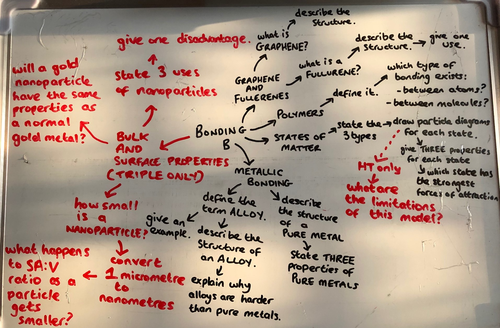 BONDING
B
GRAPHENE
AND
FULLERENES
what is
GRAPHENE?
describe the
Structure.
what is a
FULLURENE?
describe the
Structure.
give one
use.
POLYMERS
define it.
which type of
bonding exists:
- between atoms?
- between molecules?
STATES OF
MATTER
state the
3 types
draw particle diagrams
for each state.
give THREE properties
for each state
which state has
the strongest
forces of attraction
HT only
what are
the limitations
of this model?
METALLIC
BONDING
define the
term ALLOY.
give an
example.
describe the
Structure of
an ALLOY.
explain why
alloys are harder
than pure metals.
describe
the structure
of a
PURE METAL
State THREE
properties of
PURE METALS
BULK
AND
SURFACE PROPERTIES
(TRIPLE ONLY)
State 3 uses
of nanoparticles
give one disadvantage.
will a gold
nanoparticle
have the same
properties as
a normal
gold metal?
how small
is a
NANOPARTICLE?
convert
1 micrometre to
nanometres
what happens
to SA:V
ratio as a
particle
gets
smaller?